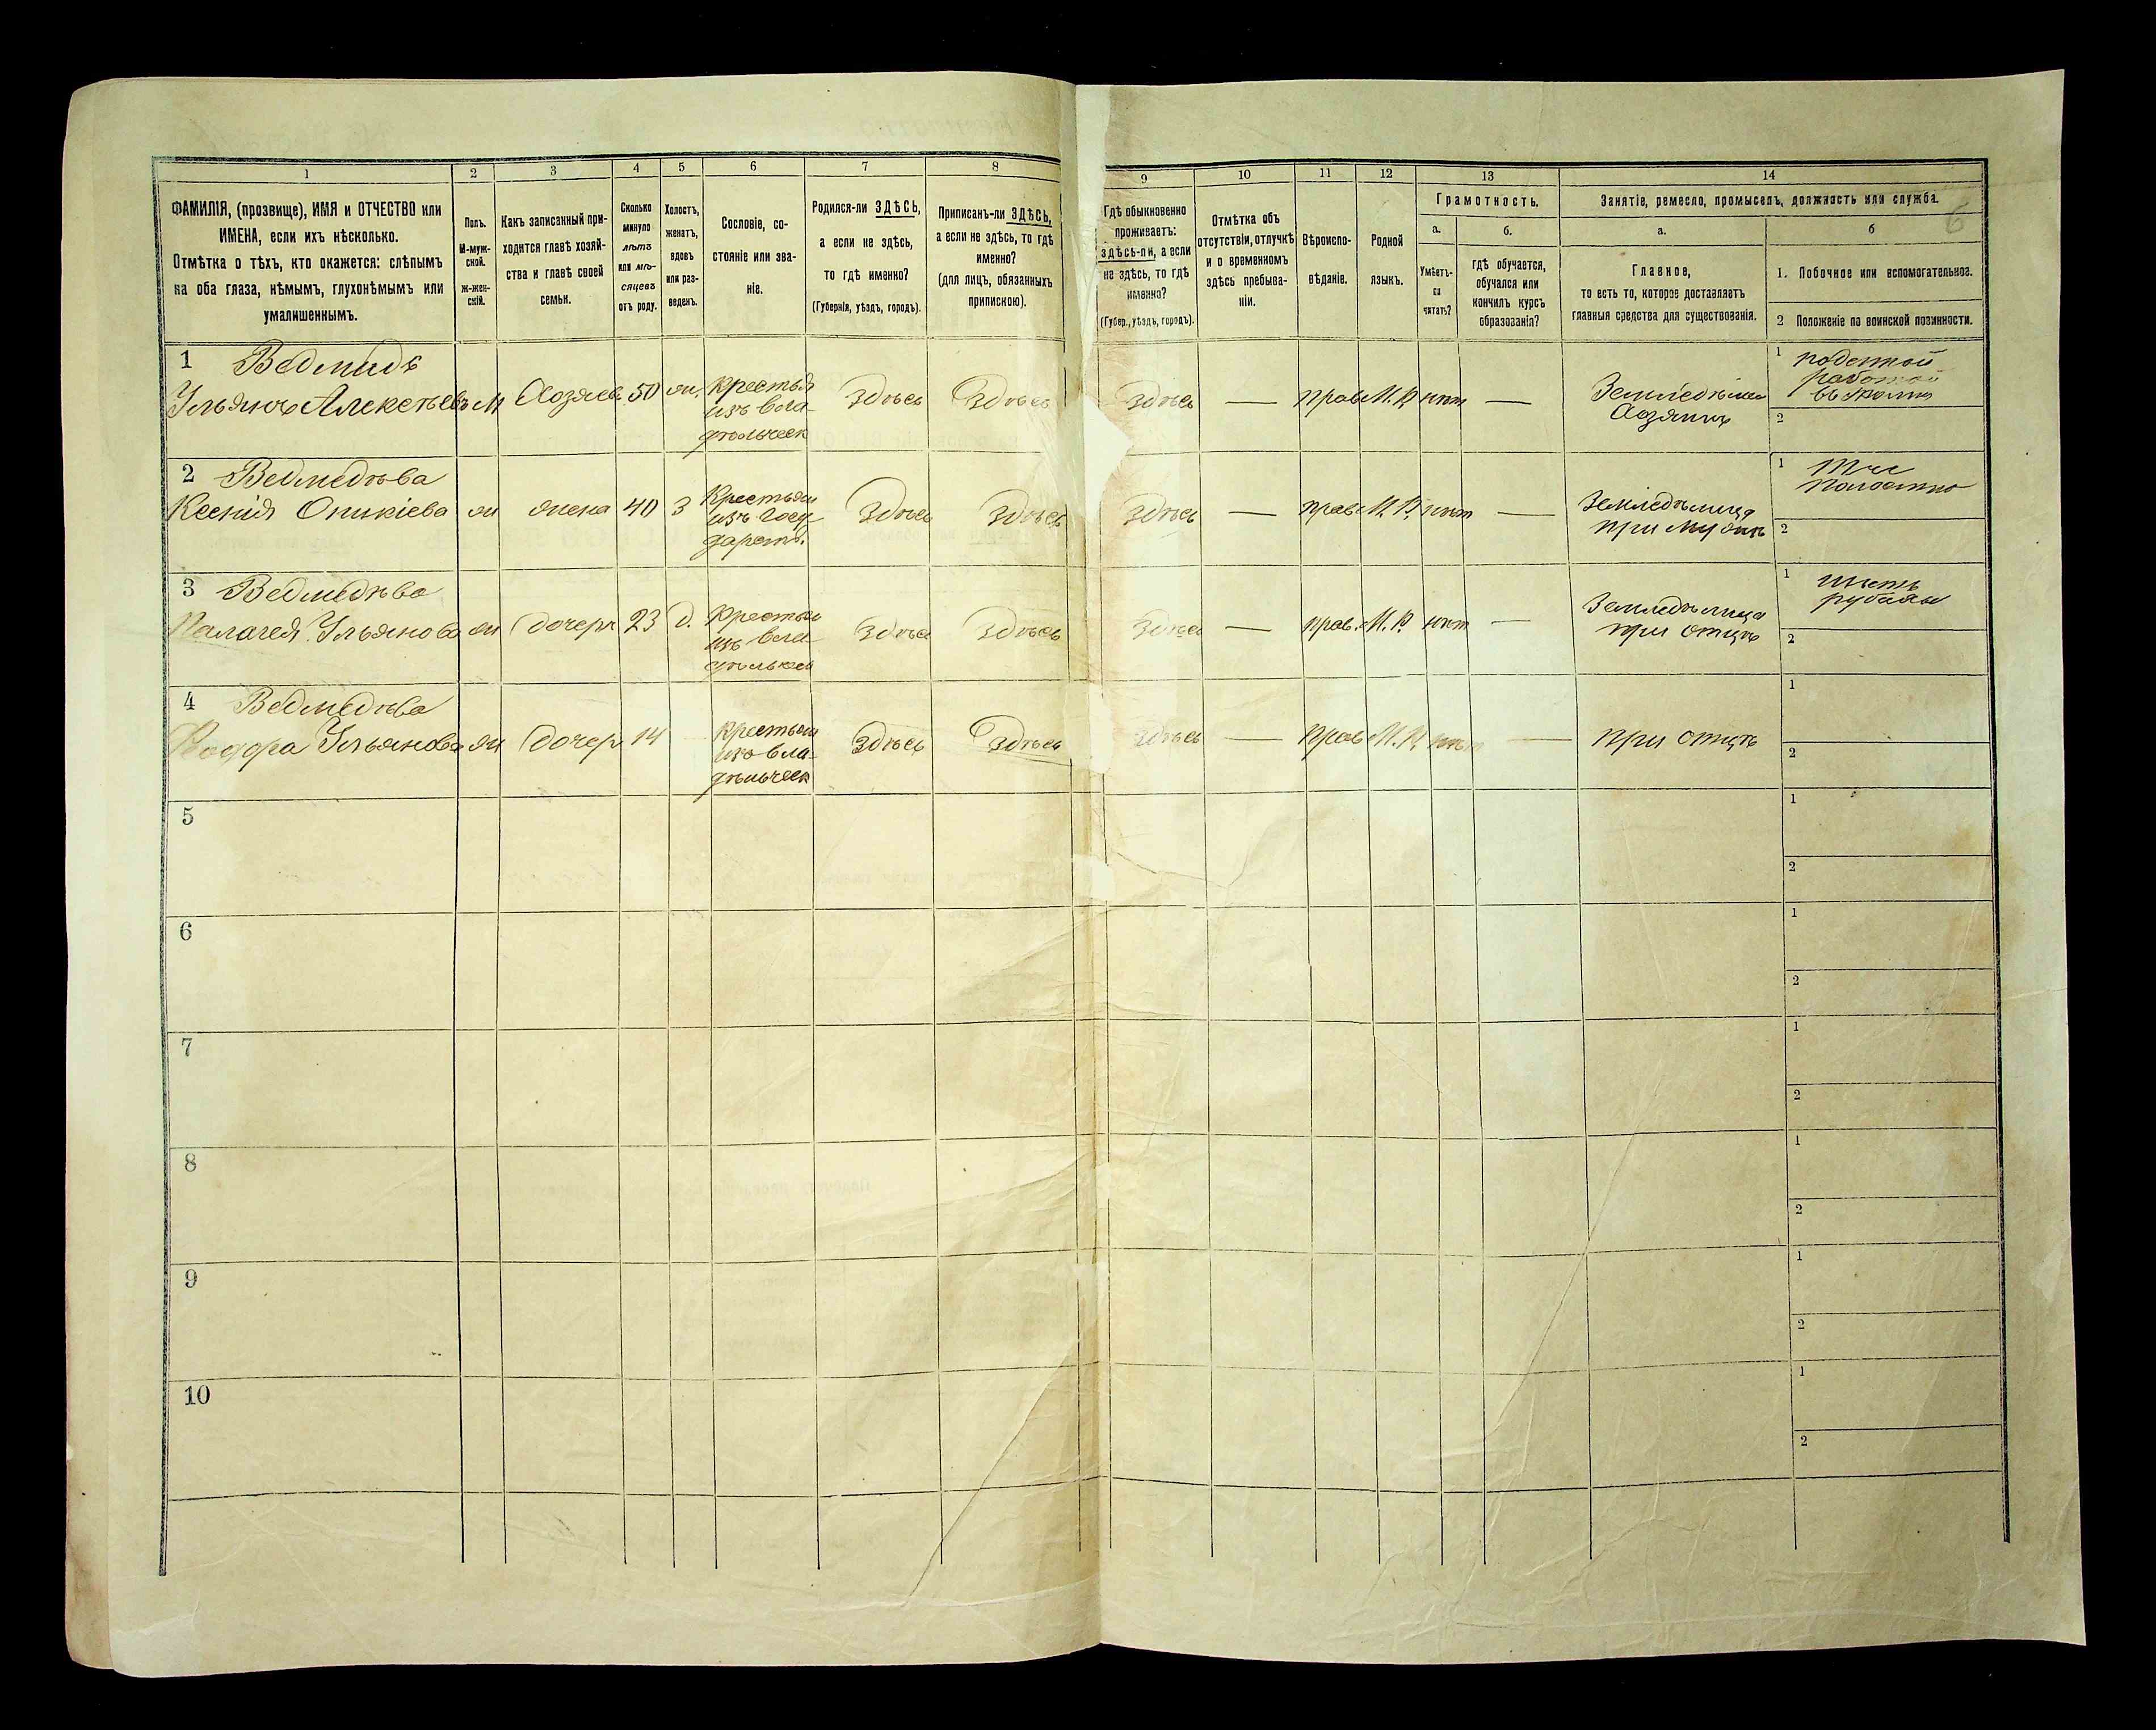 1 2 3 4 5 6 7 8 9 10 11 12 13 14
ФАМИЛІЯ, (прозвище), ИМЯ и ОТЧЕСТВО или
ИМЕНА, если ихъ нѣсколько.
Отмѣтка о тѣхъ, кто окажется: слѣпымъ
на оба глаза, нѣмымъ, глухонѣмымъ или
умалишеннымъ.
Полъ.
М-муж-
ской.
Ж-жен-
скій.
Какъ записанный при-
ходится главѣ хозяй-
ства и главѣ своей
семьи.
Сколько
минуло
лѣтъ
или мѣ-
сяцевъ
отъ роду.
Холостъ,
женатъ,
вдовъ
или раз-
веденъ.
Сословіе, со-
стояніе или зва-
ніе.
Родился-ли ЗДѢСЬ,
а если не здѣсь,
то гдѣ именно?
(Губернія, уѣздъ, городъ).
Приписанъ-ли ЗДѢСЬ,
а если не здѣсь, то гдѣ
именно?
(для лицъ, обязанныхъ
припискою).
Гдѣ обыкновенно
проживаетъ:
ЗДѢСЬ-ЛИ, а если
не здѣсь, то гдѣ
именно?
(Губер., уѣздъ, городъ).
Отмѣтка объ
отсутствіи, отлучкѣ
и о временномъ
здѣсь пребыва-
ніи.
Вѣроиспо-
вѣданіе.
Родной
языкъ.
Грамотность.
а.
Умѣетъ-
ли
читать?
б.
гдѣ обучается,
обучался или
кончилъ курсъ
образованія?
Занятіе, ремесло, промыселъ, должность или служба.
6
а.
Главное,
то есть то, которое доставляетъ
главныя средства для существованія.
б
1. Побочное или вспомогательное.
2 Положеніе по воинской повинности.
1 Ведмидь
Ульянъ Алексѣевъ
М
Хозяев
50
жи.
крестья
изъ вла-
дѣльческ
Здѣсь
Здѣсь
Здѣсь
—
прав.
М. Р.
нѣт
—
Хозяинъ
1 поденной
работой
2
2 Ведмедѣва
Ксенія Оникіева
жи
жена
40
З
Крестьян
изъ Госу
дарств.
Здѣсь
Здѣсь
Здѣсь
—
прав.
М. Р.
нѣт
—
Земледѣлица
при мужѣ
1
полотно
2
3 Ведмедѣва
Палагея Ульянова
жи
дочерь
23
д.
Крестьян
изъ вла-
дѣльческ
Здѣсь
Здѣсь
Здѣсь
—
прав.
М. Р.
нѣт
—
Земледѣлица
при отцѣ
1 шьетъ
рубахи
2
4 Ведмедѣва
Ульянова
жи
дочерь
14
крестьян
изъ вла-
дѣльческ
Здѣсь
Здѣсь
Здѣсь
—
прав
М. Р.
нѣт
—
при отцѣ
1
2
5
1
2
6
1
2
7
1
2
8
1
2
9
1
2
10
1
2